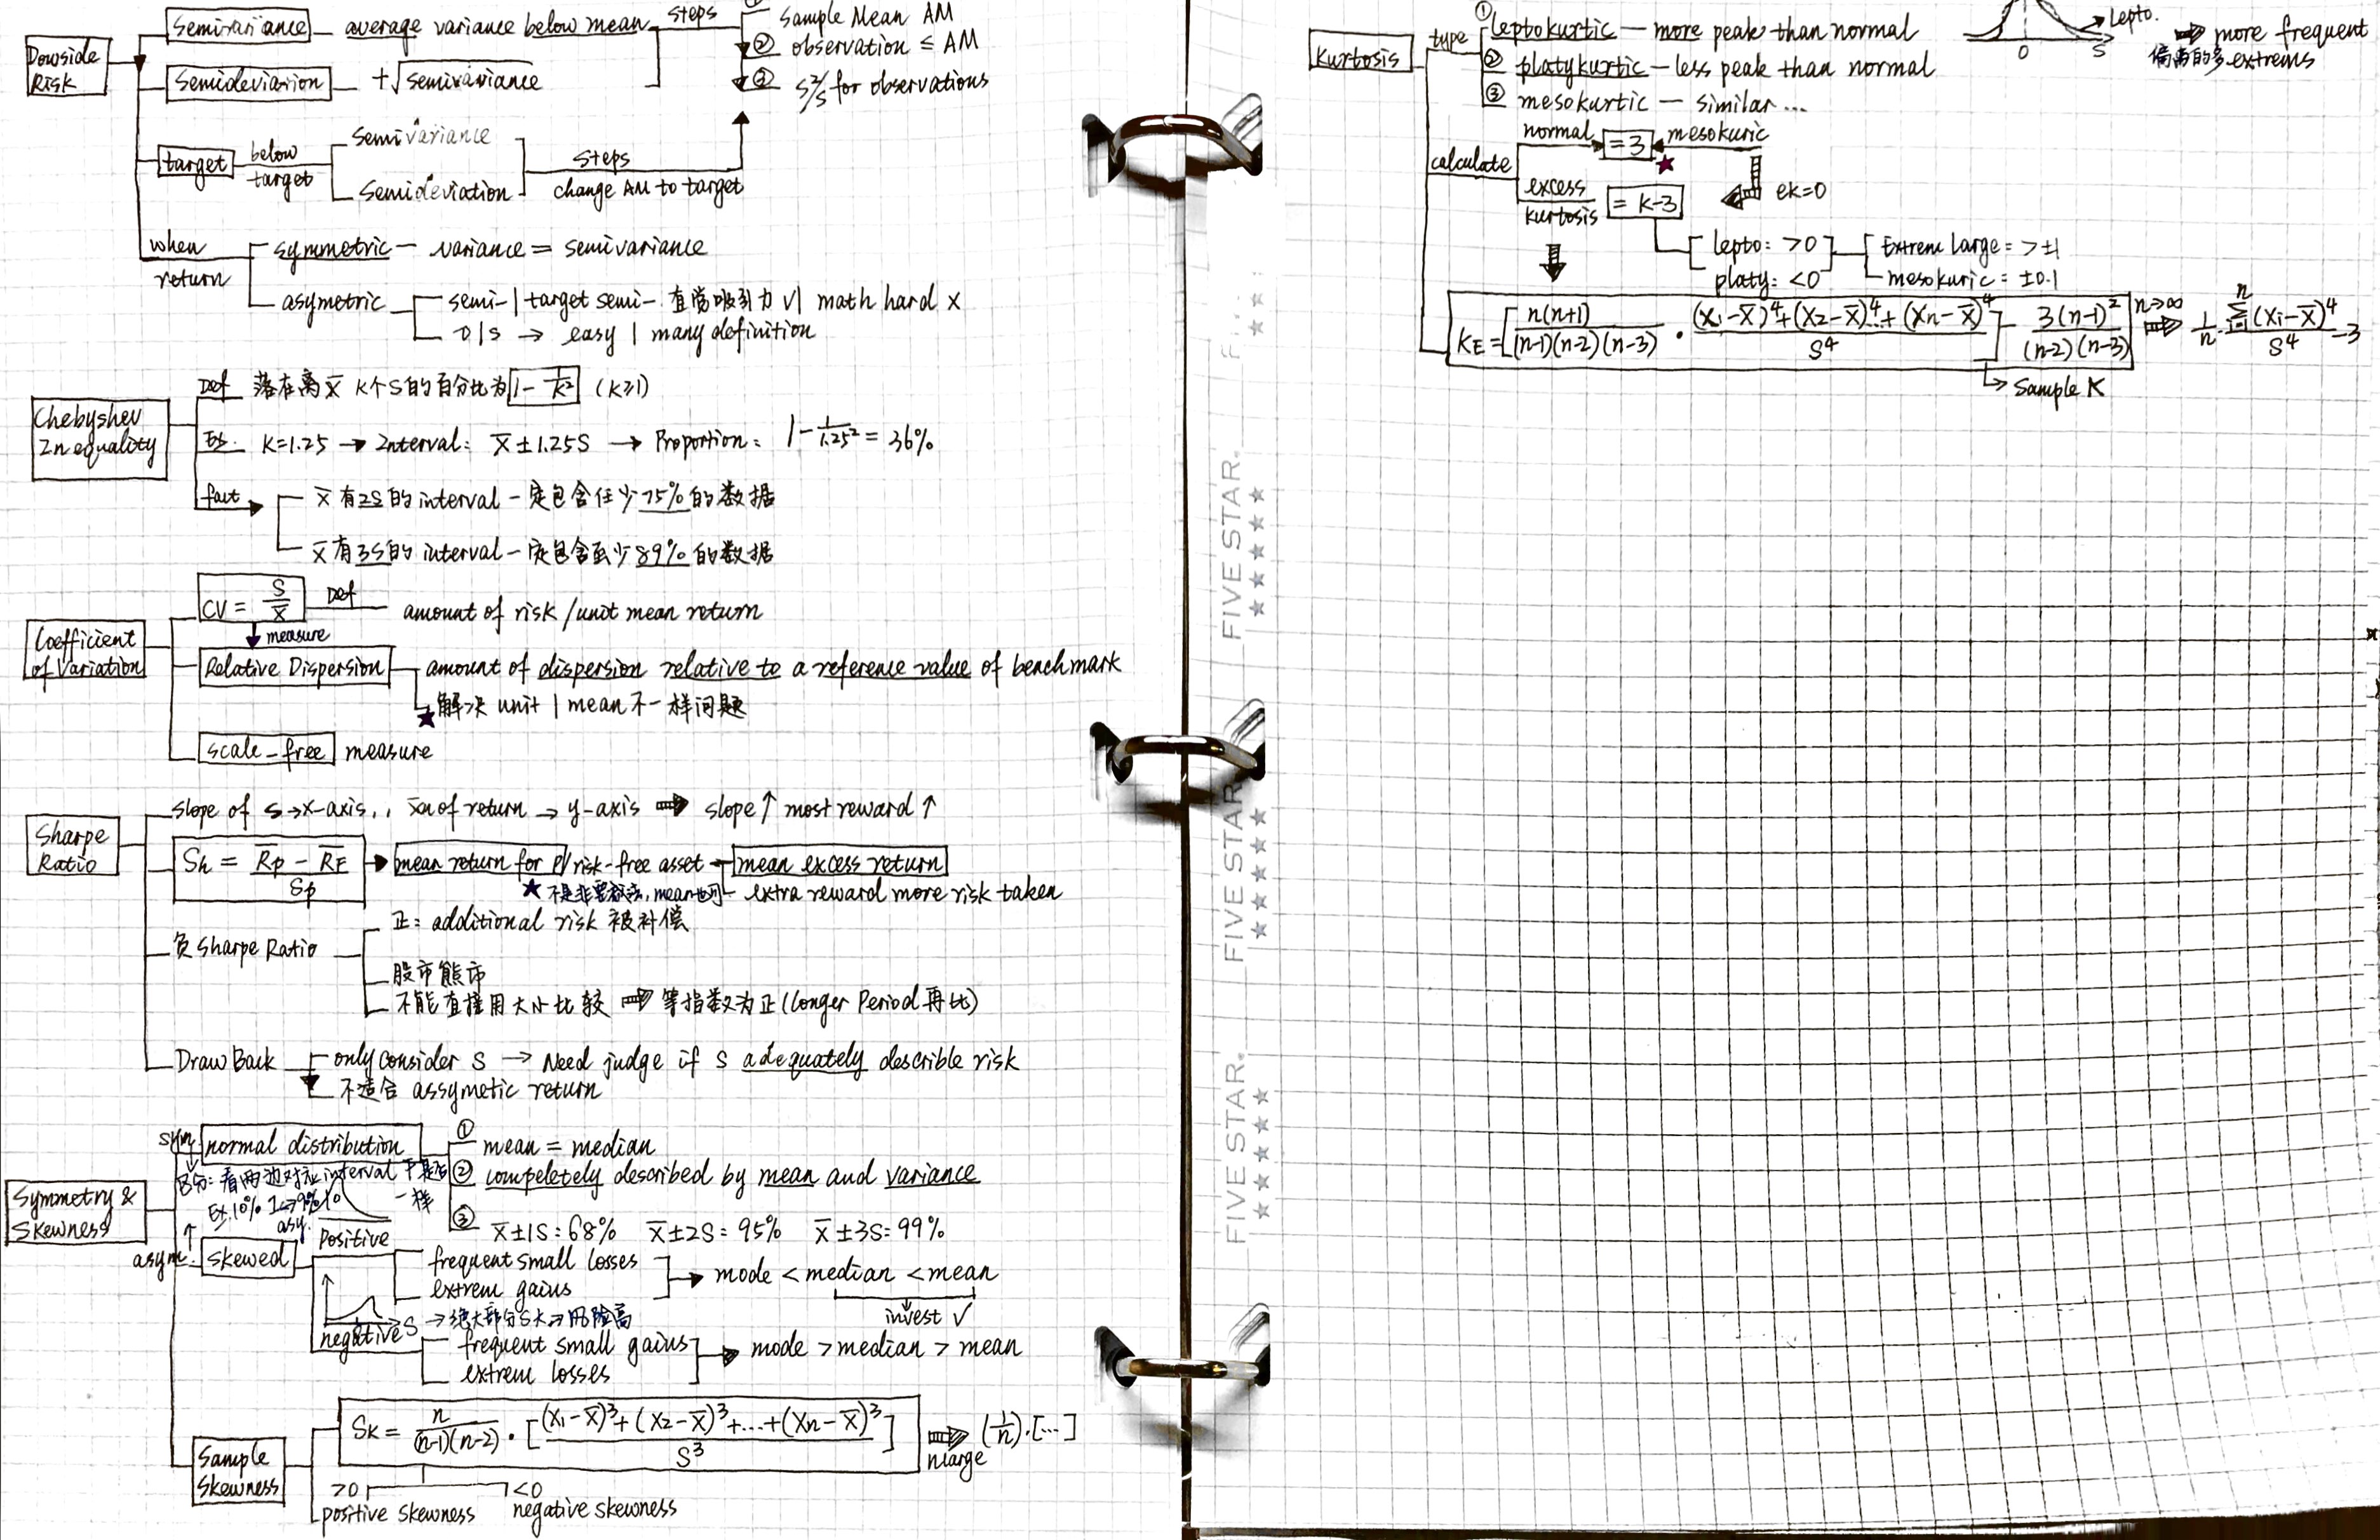 Dowside Risk
Semivariance — average variance below mean
Semideviation — +√semivariance
steps
① Sample Mean AM
② observation ≤ AM
③ S²/S for observations
target
below target
semivariance
semideviation
steps
change AM to target
when return
symmetric — variance = semivariance
asymetric
semi- | target semi- 直觉吸引力 √ | math hard ×
σ|s → easy | many definition
Chebyshev Inequality
Def 落在离 x̄ K个S的百分比为 1 - 1/K² (K≥1)
Ex. K=1.25 → Interval: x̄ ± 1.25S → Proportion: 1 - 1/1.25² = 36%
fact
x̄ 有2S的 interval 一定包含至少75%的数据
x̄ 有3S的 interval 一定包含至少89%的数据
Coefficient of Variation
CV = S/x̄ Def amount of risk / unit mean return
measure
Relative Dispersion — amount of dispersion relative to a reference value of benchmark
★ 解决 unit | mean 不一样问题
scale-free measure
Sharpe Ratio
slope of S→x-axis, x̄ of return → y-axis ⇒ slope↑ most reward↑
Sh = (R̄p - R̄F)/Sp → mean return for P/risk-free asset — mean excess return
extra reward more risk taken
负 Sharpe Ratio
正: additional risk 被补偿
股市熊市
不能直接用大小比较 ⇒ 等指数为正 (Longer Period 再比)
Draw Back
only consider S → Need judge if S adequately describle risk
不适合 assymetic return
Symmetry & Skewness
sym.
normal distribution
① mean = median
② compeletely described by mean and variance
③ x̄±1S: 68% x̄±2S: 95% x̄±3S: 99%
asy.
asym.
skewed
Positive
frequent small losses
extrem gains
mode < median < mean
invest √
→ 绝大部分S大 → 风险高
negative
S
frequent small gains
extrem losses
mode > median > mean
Sample Skewness
SK = n/((n-1)(n-2)) · [((X₁-X̄)³+(X₂-X̄)³+...+(Xn-X̄)³)/S³] ⇒ (1/n)·[...]
n large
>0 positive skewness
<0 negative skewness
Kurtosis
type
① leptokurtic — more peak than normal
② platykurtic — less peak than normal
③ mesokurtic — similar ...
Lepto.
0
S
⇒ more frequent extrems
偏离的多
calculate
normal = 3 mesokuric
★
excess kurtosis = K-3
ek=0
lepto: >0
platy: <0
Extrem large = > ±1
mesokuric = ±0.1
KE = [n(n+1)/((n-1)(n-2)(n-3)) · ((X₁-X̄)⁴+(X₂-X̄)⁴..+(Xn-X̄)⁴)/S⁴] - 3(n-1)²/((n-2)(n-3)) n→∞ ⇒ 1/n · Σ(Xi-X̄)⁴/S⁴ - 3
Sample K
FIVE STAR.
FIVE STAR.
FIVE STAR.